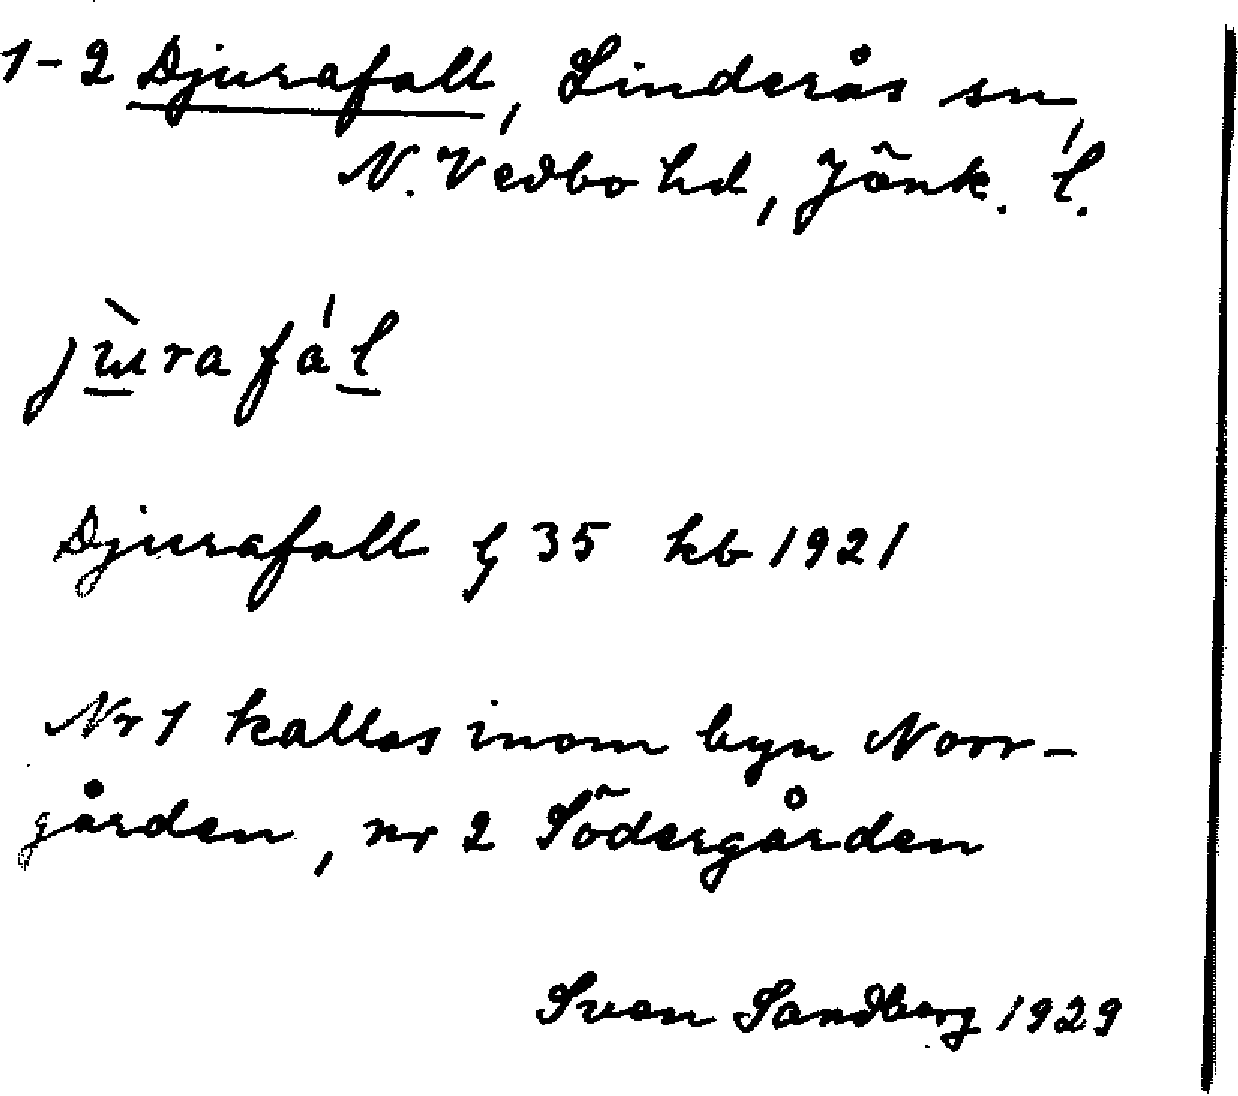 1-2 Djurafall, Linderås sn,
N. Vedbo hd, Jönk. l.
jùrafál
Djurafall § 35 kb 1921
Nr 1 kallas inom byn Norr-
gården, nr 2 Södergården
Sven Sandberg 1929